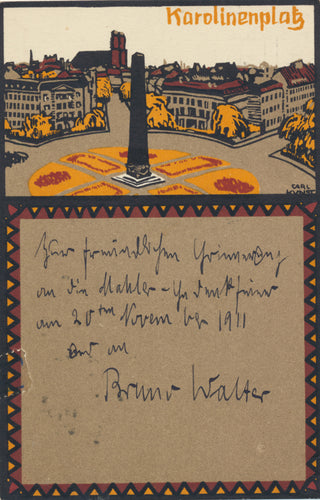 Karolinenplatz
CARL
KUNST
Zur freundlichen Erinnerung
an die Mahler-Gedenkfeier
am 20ten November 1911
und an
Bruno Walter